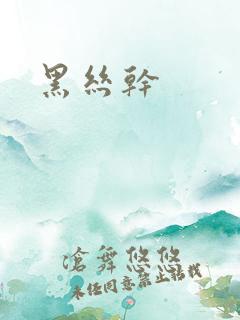 黑絲幹
滄舞悠悠
未经同意禁止转载